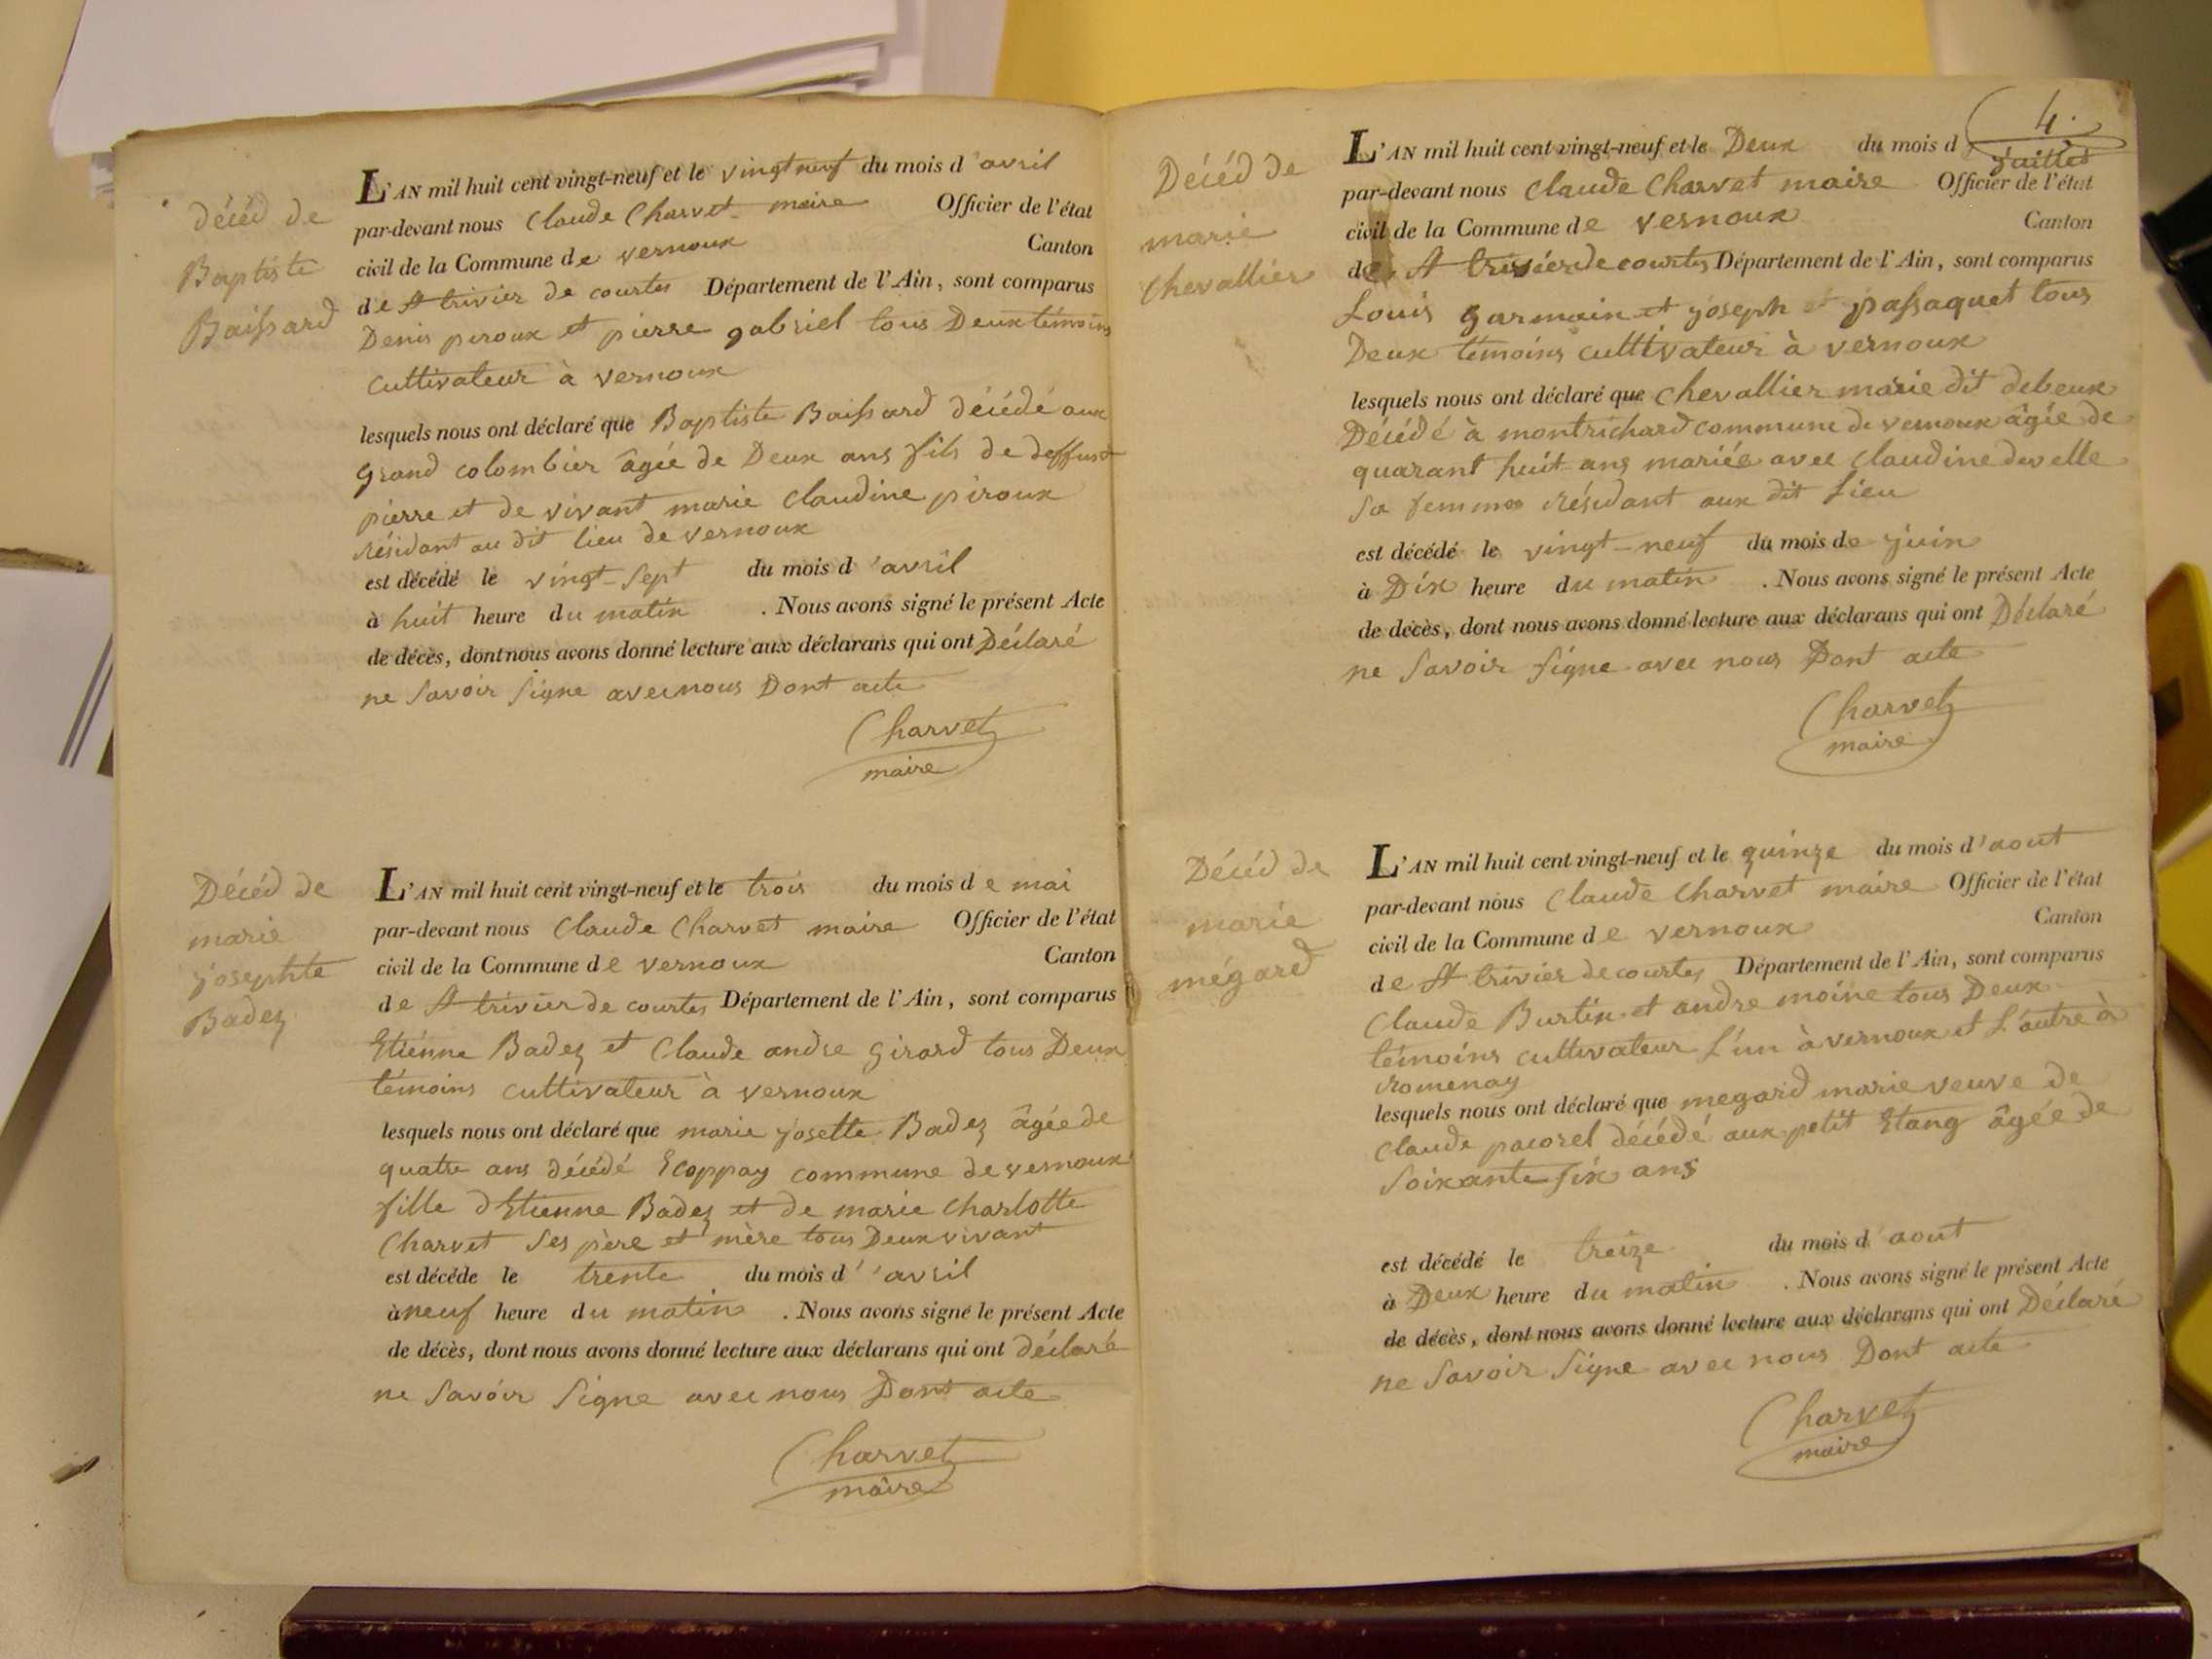 décéd de
Baptiste
Baissard
L'AN mil huit cent vingt-neuf et le vingt neuf du mois d'avril
par-devant nous Claude Charvet maire Officier de l'état
civil de la Commune de vernoux Canton
de St trivier de courtes Département de l'Ain, sont comparus
Denis peroux et pierre gabriel tous Deux témoins
cultivateur à vernoux
lesquels nous ont déclaré que Baptiste Baissard décédé aux
grand colombier âgée de Deux ans fils de deffunt
pierre et de vivant marie claudine piroux
résidant au dit lieu de vernoux
est décédé le vingt-sept du mois d'avril
à huit heure du matin . Nous avons signé le présent Acte
de décès, dont nous avons donné lecture aux déclarans qui ont Déclaré
ne savoir signe avec nous Dont acte
Charvet
maire
Décéd de
marie
josephte
Badez
L'AN mil huit cent vingt-neuf et le trois du mois de mai
par-devant nous Claude Charvet maire Officier de l'état
civil de la Commune de vernoux Canton
de St trivier de courtes Département de l'Ain, sont comparus
Etienne Badez et Claude andre girard tous Deux
témoins cultivateur à vernoux
lesquels nous ont déclaré que marie josette Badez âgée de
quatre ans décédé Ecoppay commune de vernoux
fille d'Etienne Badez et de marie charlotte
Charvet ses père et mère tous Deux vivant
est décédé le trente du mois d'avril
à neuf heure du matin . Nous avons signé le présent Acte
de décès, dont nous avons donné lecture aux déclarans qui ont déclaré
ne savoir signe avec nous Dont acte
Charvet
maire
4.
Décéd de
marie
chevallier
L'AN mil huit cent vingt-neuf et le Deux du mois d juillet
par-devant nous Claude Charvet maire Officier de l'état
civil de la Commune de vernoux Canton
de St trivier de courtes Département de l'Ain, sont comparus
Louis garmain et joseph passaquet tous
Deux témoins cultivateur à vernoux
lesquels nous ont déclaré que chevallier marie dit debeux
Décédé à montrichard commune de vernoux âgée de
quarant huit ans mariée avec claudine develle
sa femme résidant aux dit lieu
est décédé le vingt-neuf du mois de juin
à Dix heure du matin . Nous avons signé le présent Acte
de décès, dont nous avons donné lecture aux déclarans qui ont Déclaré
ne savoir signe avec nous Dont acte
Charvet
maire
Décéd de
marie
mégard
L'AN mil huit cent vingt-neuf et le quinze du mois d'aout
par-devant nous Claude Charvet maire Officier de l'état
civil de la Commune de vernoux Canton
de St trivier de courtes Département de l'Ain, sont comparus
Claude Burtin et andre moine tous Deux
témoins cultivateur l'un à vernoux et l'autre à
romenay
lesquels nous ont déclaré que megard marie veuve de
claude pacorel décédé aux petit Etang âgée de
soixante six ans
est décédé le treize du mois d'aout
à Deux heure du matin . Nous avons signé le présent Acte
de décès, dont nous avons donné lecture aux déclarans qui ont Déclaré
ne savoir signe avec nous Dont acte
Charvet
maire